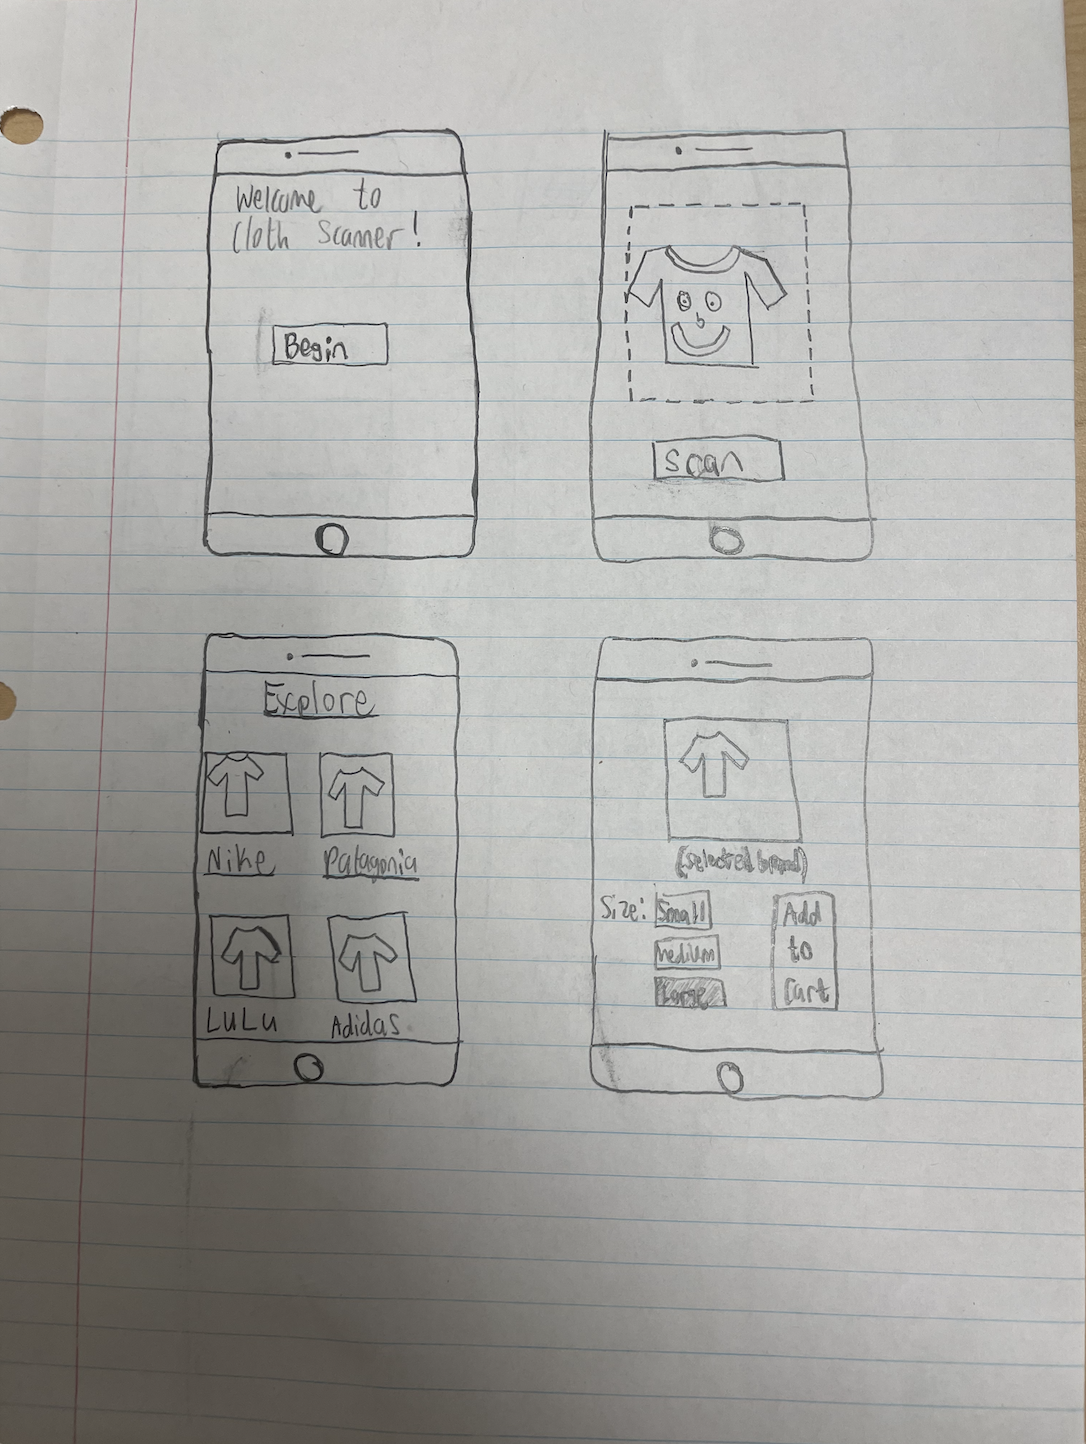 Welcome to
Cloth Scanner!
Begin
Scan
Explore
Nike
Patagonia
LuLu
Adidas
(Selected brand)
Size:
Small
Medium
Large
Add
to
Cart